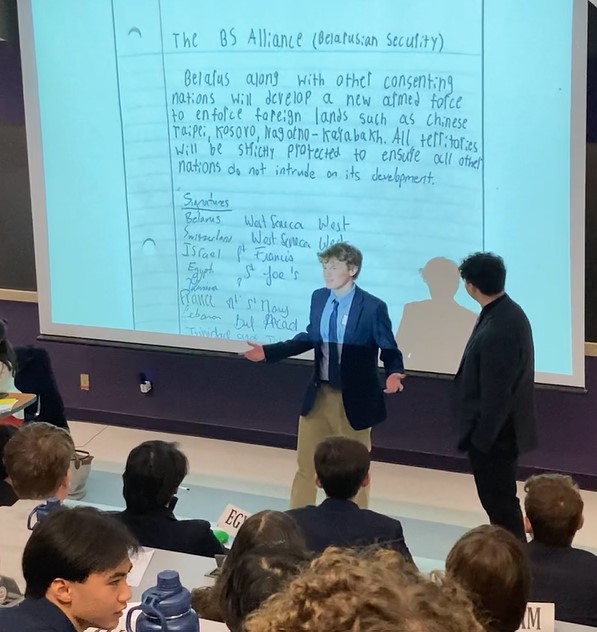 The BS Alliance (Belarusian Security)
Belarus along with other consenting
nations will develop a new armed force
to enforce foreign lands such as Chinese
Taipei, Kosovo, Nagorno-Karabakh. All territories
will be strictly protected to ensure all other
nations do not intrude on its development.
Signatures
Belarus West Seneca West
Switzerland West Seneca West
Israel St Francis
Egypt St Joe's
France Mt St Mary
Lebanon Buf Acad
Trinidad and
EG
AM